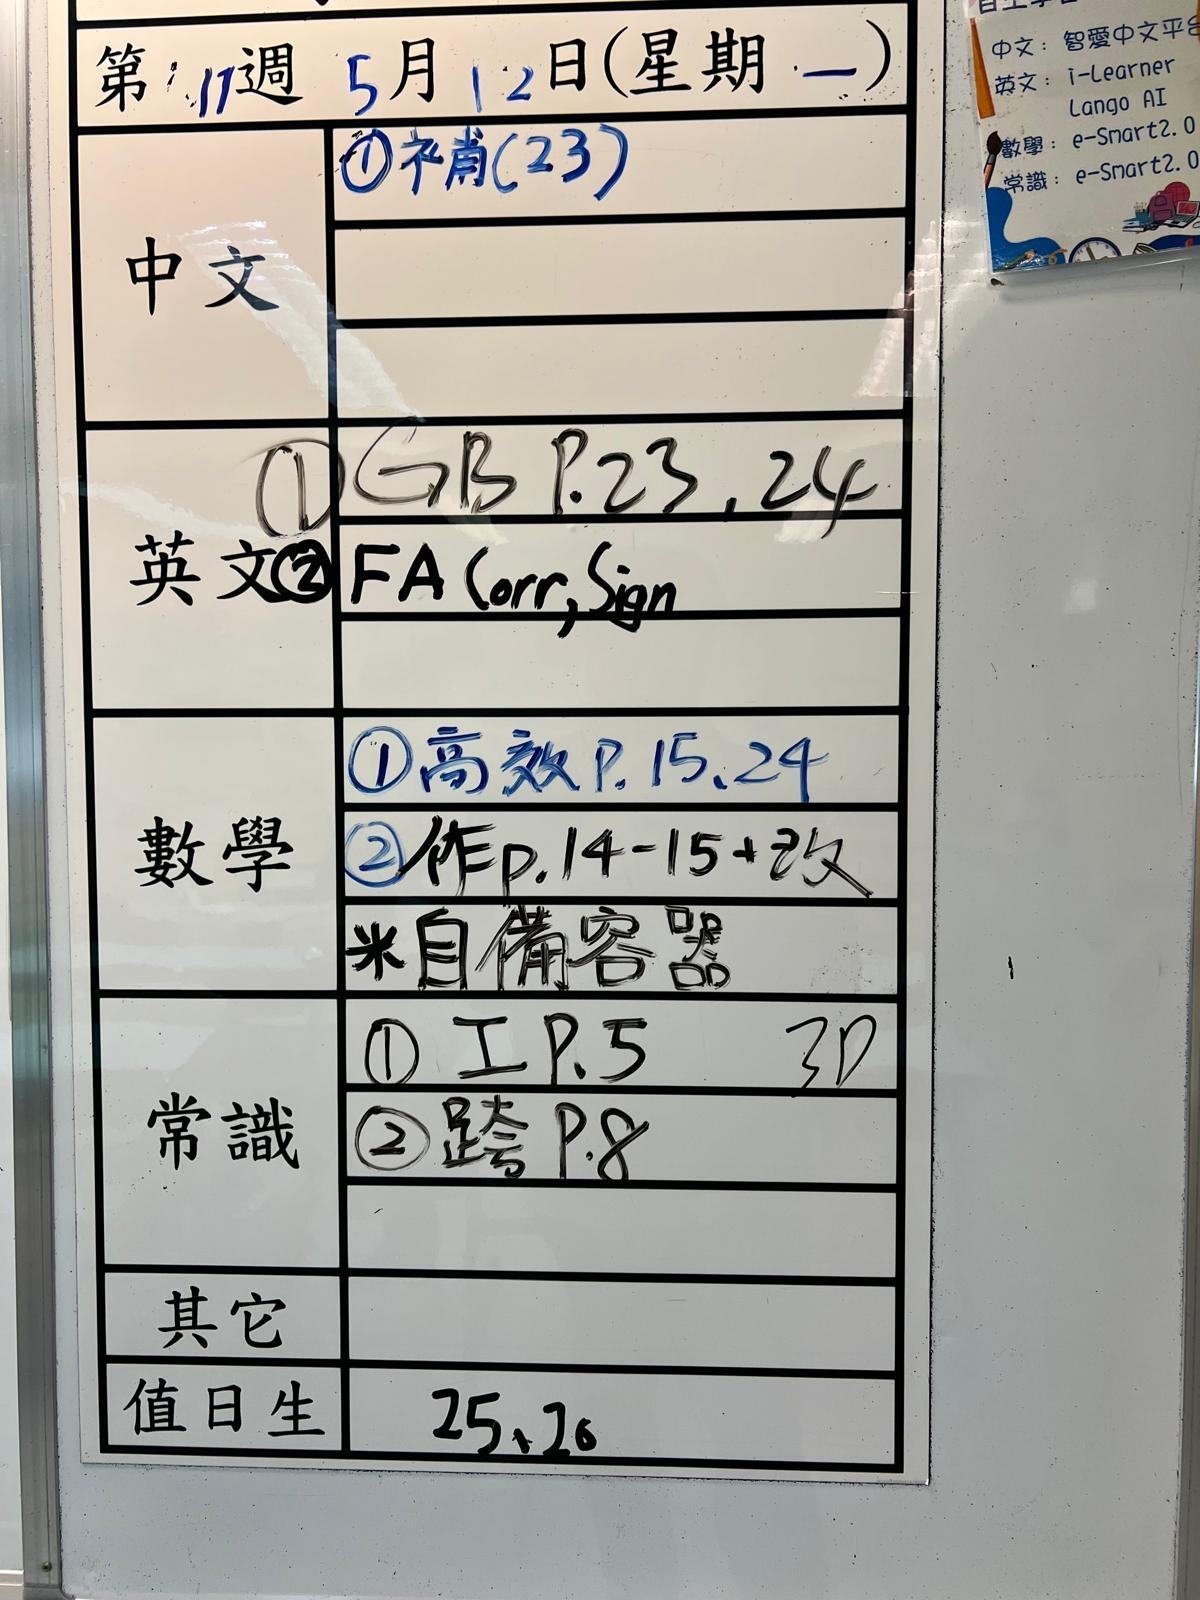 第11週 5月12日(星期一)
中文
①補(23)
英文
① GB P.23,24
② FA Corr, Sign
數學
①高效P.15、24
②作p.14-15+改
*自備容器
常識
① 工P.5 3D
② 跨P.8
其它
值日生
25、26
中文: 智愛中文平台
英文: i-Learner
Lango AI
數學: e-Smart2.0
常識: e-Smart2.0